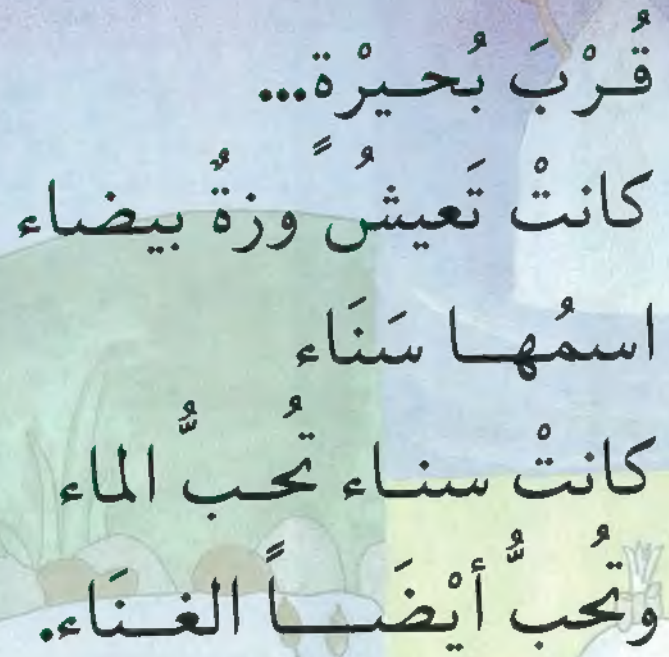 قُرْبَ بُحيرْةٍ...
كانتْ تَعيشُ وزةٌ بيضاء
اسمُها سَنَاء
كانتْ سناء تُحبُّ الماء
وتُحبُّ أيْضَاً الغنَاء.